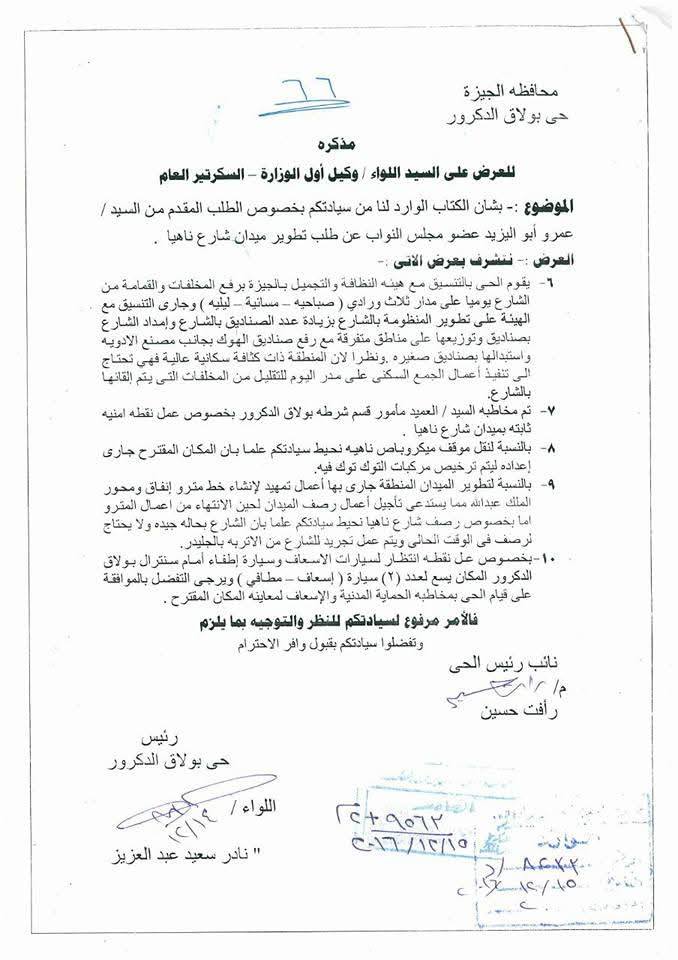 ٦٦
محافظه الجيزة
حى بولاق الدكرور
مذكره
للعرض على السيد اللواء / وكيل أول الوزارة – السكرتير العام
الموضوع :- بشان الكتاب الوارد لنا من سيادتكم بخصوص الطلب المقدم من السيد /
عمرو أبو اليزيد عضو مجلس النواب عن طلب تطوير ميدان شارع ناهيا .
العرض :- نتشرف بعرض الاتى :-
٦- يقوم الحى بالتنسيق مع هيئه النظافة والتجميل بالجيزة برفع المخلفات والقمامة من
الشارع يوميا على مدار ثلاث ورادي ( صباحيه – مسائية – ليليه ) وجارى التنسيق مع
الهيئة على تطوير المنظومة بالشارع بزيادة عدد الصناديق بالشارع وإمداد الشارع
بصناديق وتوزيعها على مناطق متفرقة مع رفع صناديق الهوك بجانب مصنع الادويه
واستبدالها بصناديق صغيره .ونظرا لان المنطقة ذات كثافة سكانية عالية فهي تحتاج
الى تنفيذ أعمال الجمع السكنى على مدر اليوم للتقليل من المخلفات التى يتم إلقائها
بالشارع.
٧- تم مخاطبه السيد / العميد مأمور قسم شرطه بولاق الدكرور بخصوص عمل نقطه امنيه
ثابته بميدان شارع ناهيا .
٨- بالنسبة لنقل موقف ميكروباص ناهيه نحيط سيادتكم علما بان المكان المقترح جارى
إعداده ليتم ترخيص مركبات التوك توك فيه.
٩- بالنسبة لتطوير الميدان المنطقة جارى بها أعمال تمهيد لإنشاء خط مترو إنفاق ومحور
الملك عبدالله مما يستدعى تأجيل أعمال رصف الميدان لحين الانتهاء من اعمال المترو
اما بخصوص رصف شارع ناهيا نحيط سيادتكم علما بان الشارع بحاله جيده ولا يحتاج
لرصف فى الوقت الحالى ويتم عمل تجريد للشارع من الاتربه بالجليدر.
١٠- بخصوص عل نقطه انتظار لسيارات الاسعاف وسيارة إطفاء أمام سنترال بولاق
الدكرور المكان يسع لعدد (٢) سيارة ( إسعاف – مطافي ) ويرجى التفضل بالموافقة
على قيام الحى بمخاطبه الحماية المدنية والإسعاف لمعاينه المكان المقترح .
فالأمر مرفوع لسيادتكم للنظر والتوجيه بما يلزم
وتفضلوا سيادتكم بقبول وافر الاحترام
نائب رئيس الحى
م/
رأفت حسين
رئيس
حى بولاق الدكرور
اللواء /
١٢/١٤
" نادر سعيد عبد العزيز
٩٥٦٢
٢٠١٦/١٢/١٥